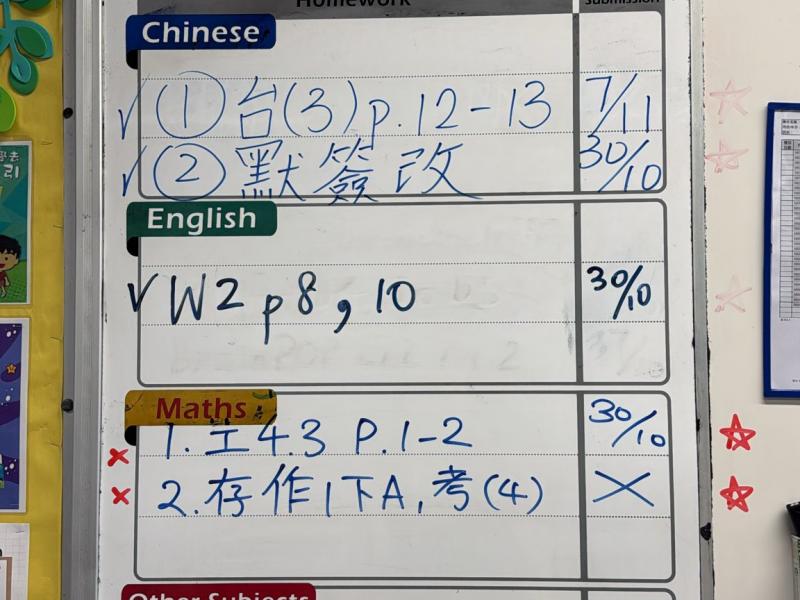 Homework
Submission
Chinese
✓ ① 台(3) p.12-13 7/11
✓ ② 默簽改 30/10
English
✓ W2 p8, 10 30/10
Maths
× 1. 工4.3 P.1-2 30/10
× 2. 存作1下A, 考(4) ×
Other Subjects